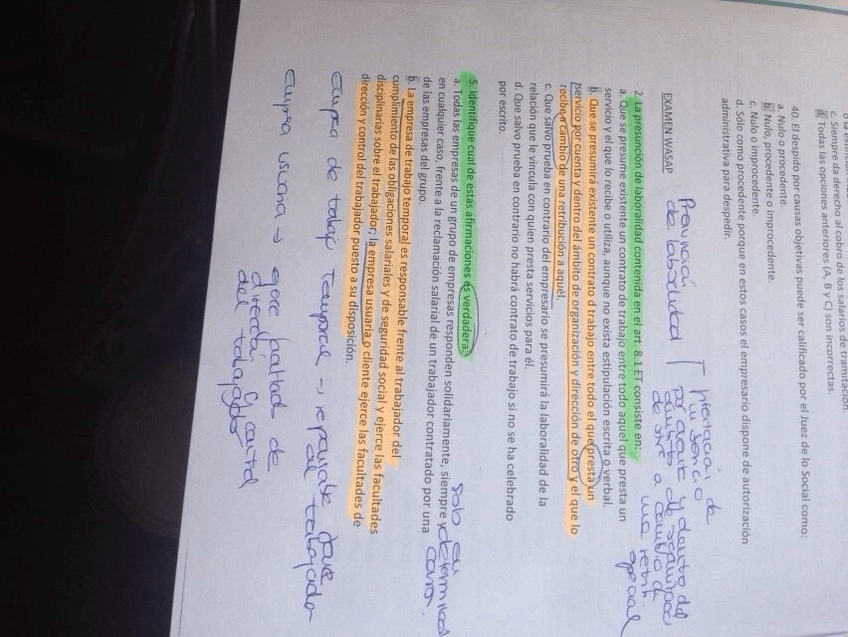 c. Siempre da derecho al cobro de los salarios de tramitación.
d. Todas las opciones anteriores (A, B y C) son incorrectas.
40. El despido por causas objetivas puede ser calificado por el Juez de lo Social como:
a. Nulo o procedente.
b. Nulo, procedente o improcedente.
c. Nulo o improcedente.
d. Sólo como procedente porque en estos casos el empresario dispone de autorización
administrativa para despedir.
EXAMEN WASAP
Presunción
de laboralidad
prestación de
un servicio
por cuenta y dentro del
ámbito de
de otro a cambio de
una retrib
2. La presunción de laboralidad contenida en el art. 8.1 ET consiste en:
a. Que se presume existente un contrato de trabajo entre todo aquel que presta un
servicio y el que lo recibe o utiliza, aunque no exista estipulación escrita o verbal.
b. Que se presumirá existente un contrato d trabajo entre todo el que presta un
servicio por cuenta y dentro del ámbito de organización y dirección de otro y el que lo
recibe a cambio de una retribución a aquél.
c. Que salvo prueba en contrario del empresario se presumirá la laboralidad de la
relación que le vincula con quien presta servicios para él.
d. Que salvo prueba en contrario no habrá contrato de trabajo si no se ha celebrado
por escrito.
5. Identifique cual de estas afirmaciones es verdadera:
a. Todas las empresas de un grupo de empresas responden solidariamente, siempre y
en cualquier caso, frente a la reclamación salarial de un trabajador contratado por una
de las empresas del grupo.
solo en
determinados
casos.
b. La empresa de trabajo temporal es responsable frente al trabajador del
cumplimiento de las obligaciones salariales y de seguridad social y ejerce las facultades
disciplinarias sobre el trabajador; la empresa usuaria o cliente ejerce las facultades de
dirección y control del trabajador puesto a su disposición.
empresa de trabajo temporal → responsable frente
al trabajador
empresa usuaria → ejerce facultad de
dirección y control
del trabajador